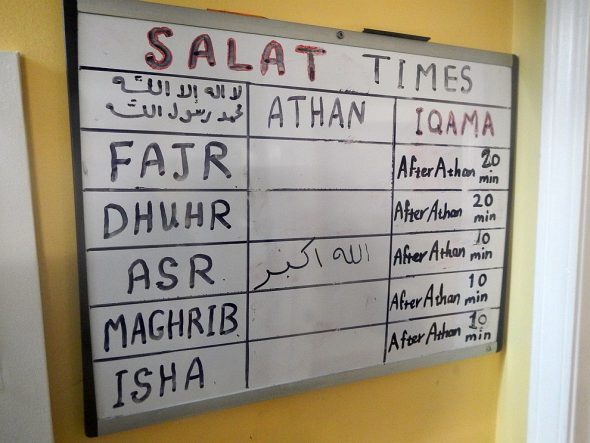 SALAT TIMES
لا اله إلا الله
محمد رسول الله
ATHAN
IQAMA
FAJR
After Athan 20 min
DHUHR
After Athan 20 min
ASR
الله اكبر
After Athan 10 min
MAGHRIB
After Athan 10 min
ISHA
After Athan 10 min